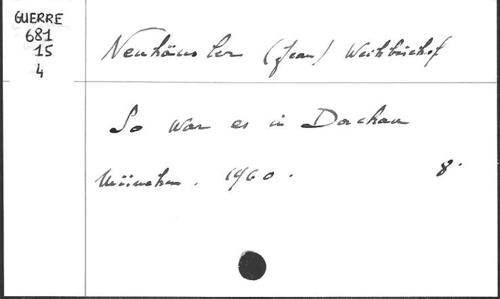 GUERRE
681
15
4
Neuhäusler (Jean) Weihbischof
So war es in Dachau
München. 1960. 8°